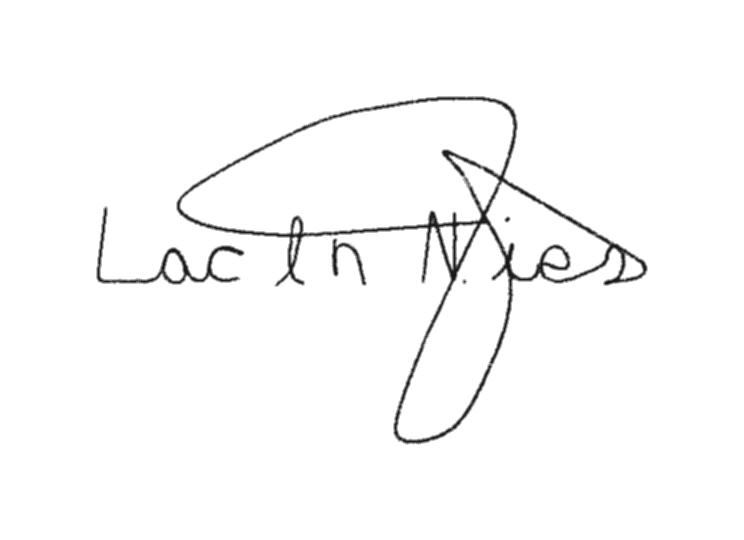 Lac ln Nies